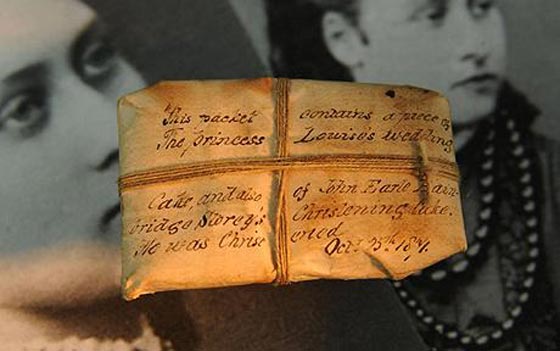 This packet contains a piece of
The Princess Louise's wedding
Cake, and also of John Earle Bain-
bridge Storey's Christening Cake.
He was Christ ened
Octr 25th 1871.